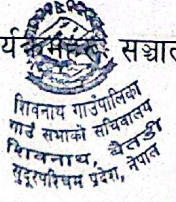 र्यक्रम सञ्चाल
शिवनाथ गाउँपालिका
गाउँ सभाको सचिवालय
शिवनाथ, बैतडी
सुदूरपश्चिम प्रदेश, नेपाल